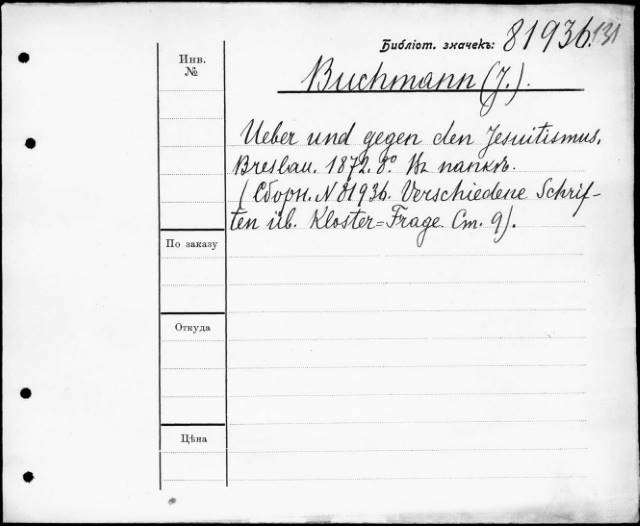 Библіот. значекъ: 81936.131
Инв.
№
Buchmann (J.).
Ueber und gegen den Jesuitismus.
Breslau. 1872. 8º. Въ папкѣ.
(Сборн. N 81936. Verschiedene Schrif-
ten üb. Kloster=Frage. Ст. 9).
По заказу
Откуда
Цѣна